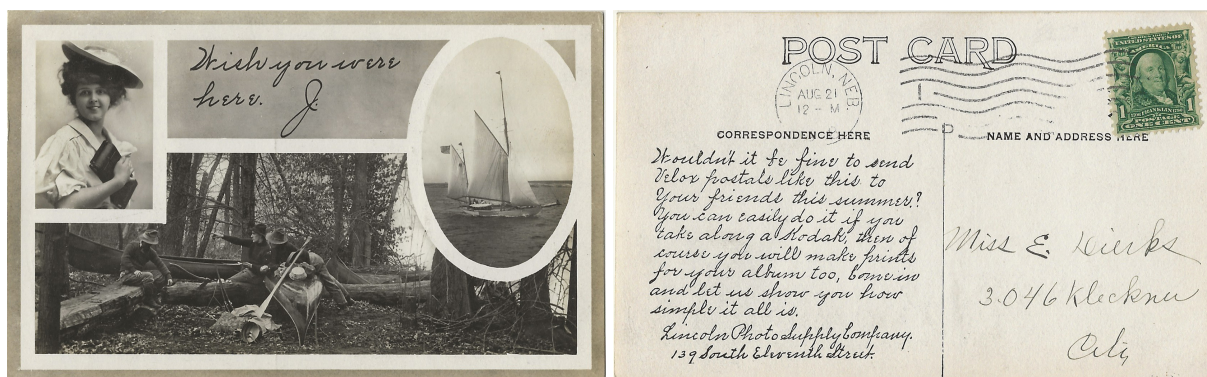 Wish you were
here. J.
POST CARD
LINCOLN, NEB.
AUG 21
12 - M
UNITED STATES OF
AMERICA
1 FRANKLIN 1
POSTAGE
ONE CENT
CORRESPONDENCE HERE
NAME AND ADDRESS HERE
Wouldn't it be fine to send
Velox postals like this to
Your friends this summer?
You can easily do it if you
take along a Kodak, then of
course you will make prints
for your album too, Come in
and let us show you how
simple it all is.
Lincoln Photo Supply Company.
139 South Eleventh Street.
Miss E. Dierks
3046 Kleckner
City